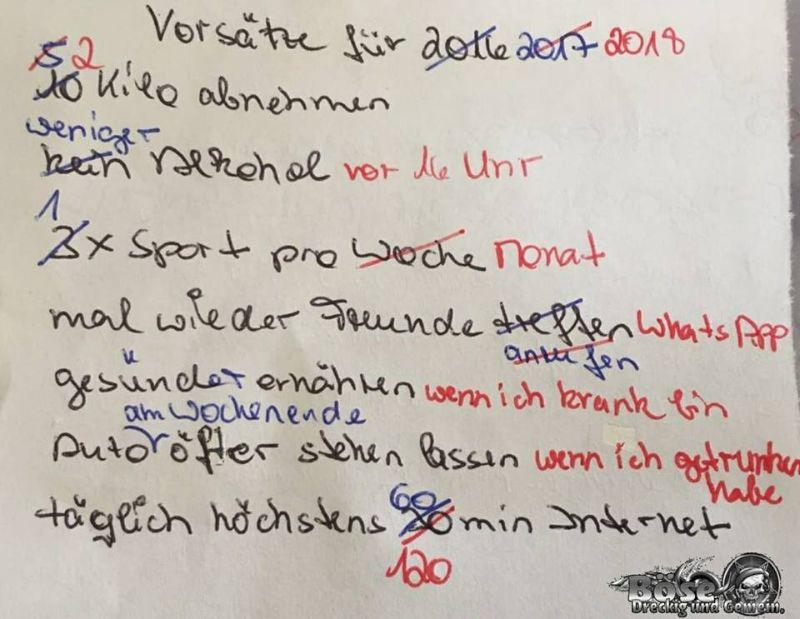 Vorsätze für 2016 2017 2018
5 2
10 Kilo abnehmen
weniger
kein Alkohol vor 16 Uhr
1
3x Sport pro Woche Monat
mal wieder Freunde treffen WhatsApp
anrufen
gesünder ernähren wenn ich krank bin
am Wochenende
Auto öfter stehen lassen wenn ich getrunken
habe
60
täglich höchstens min Internet
120
Böse
Dreckig und Gemein.